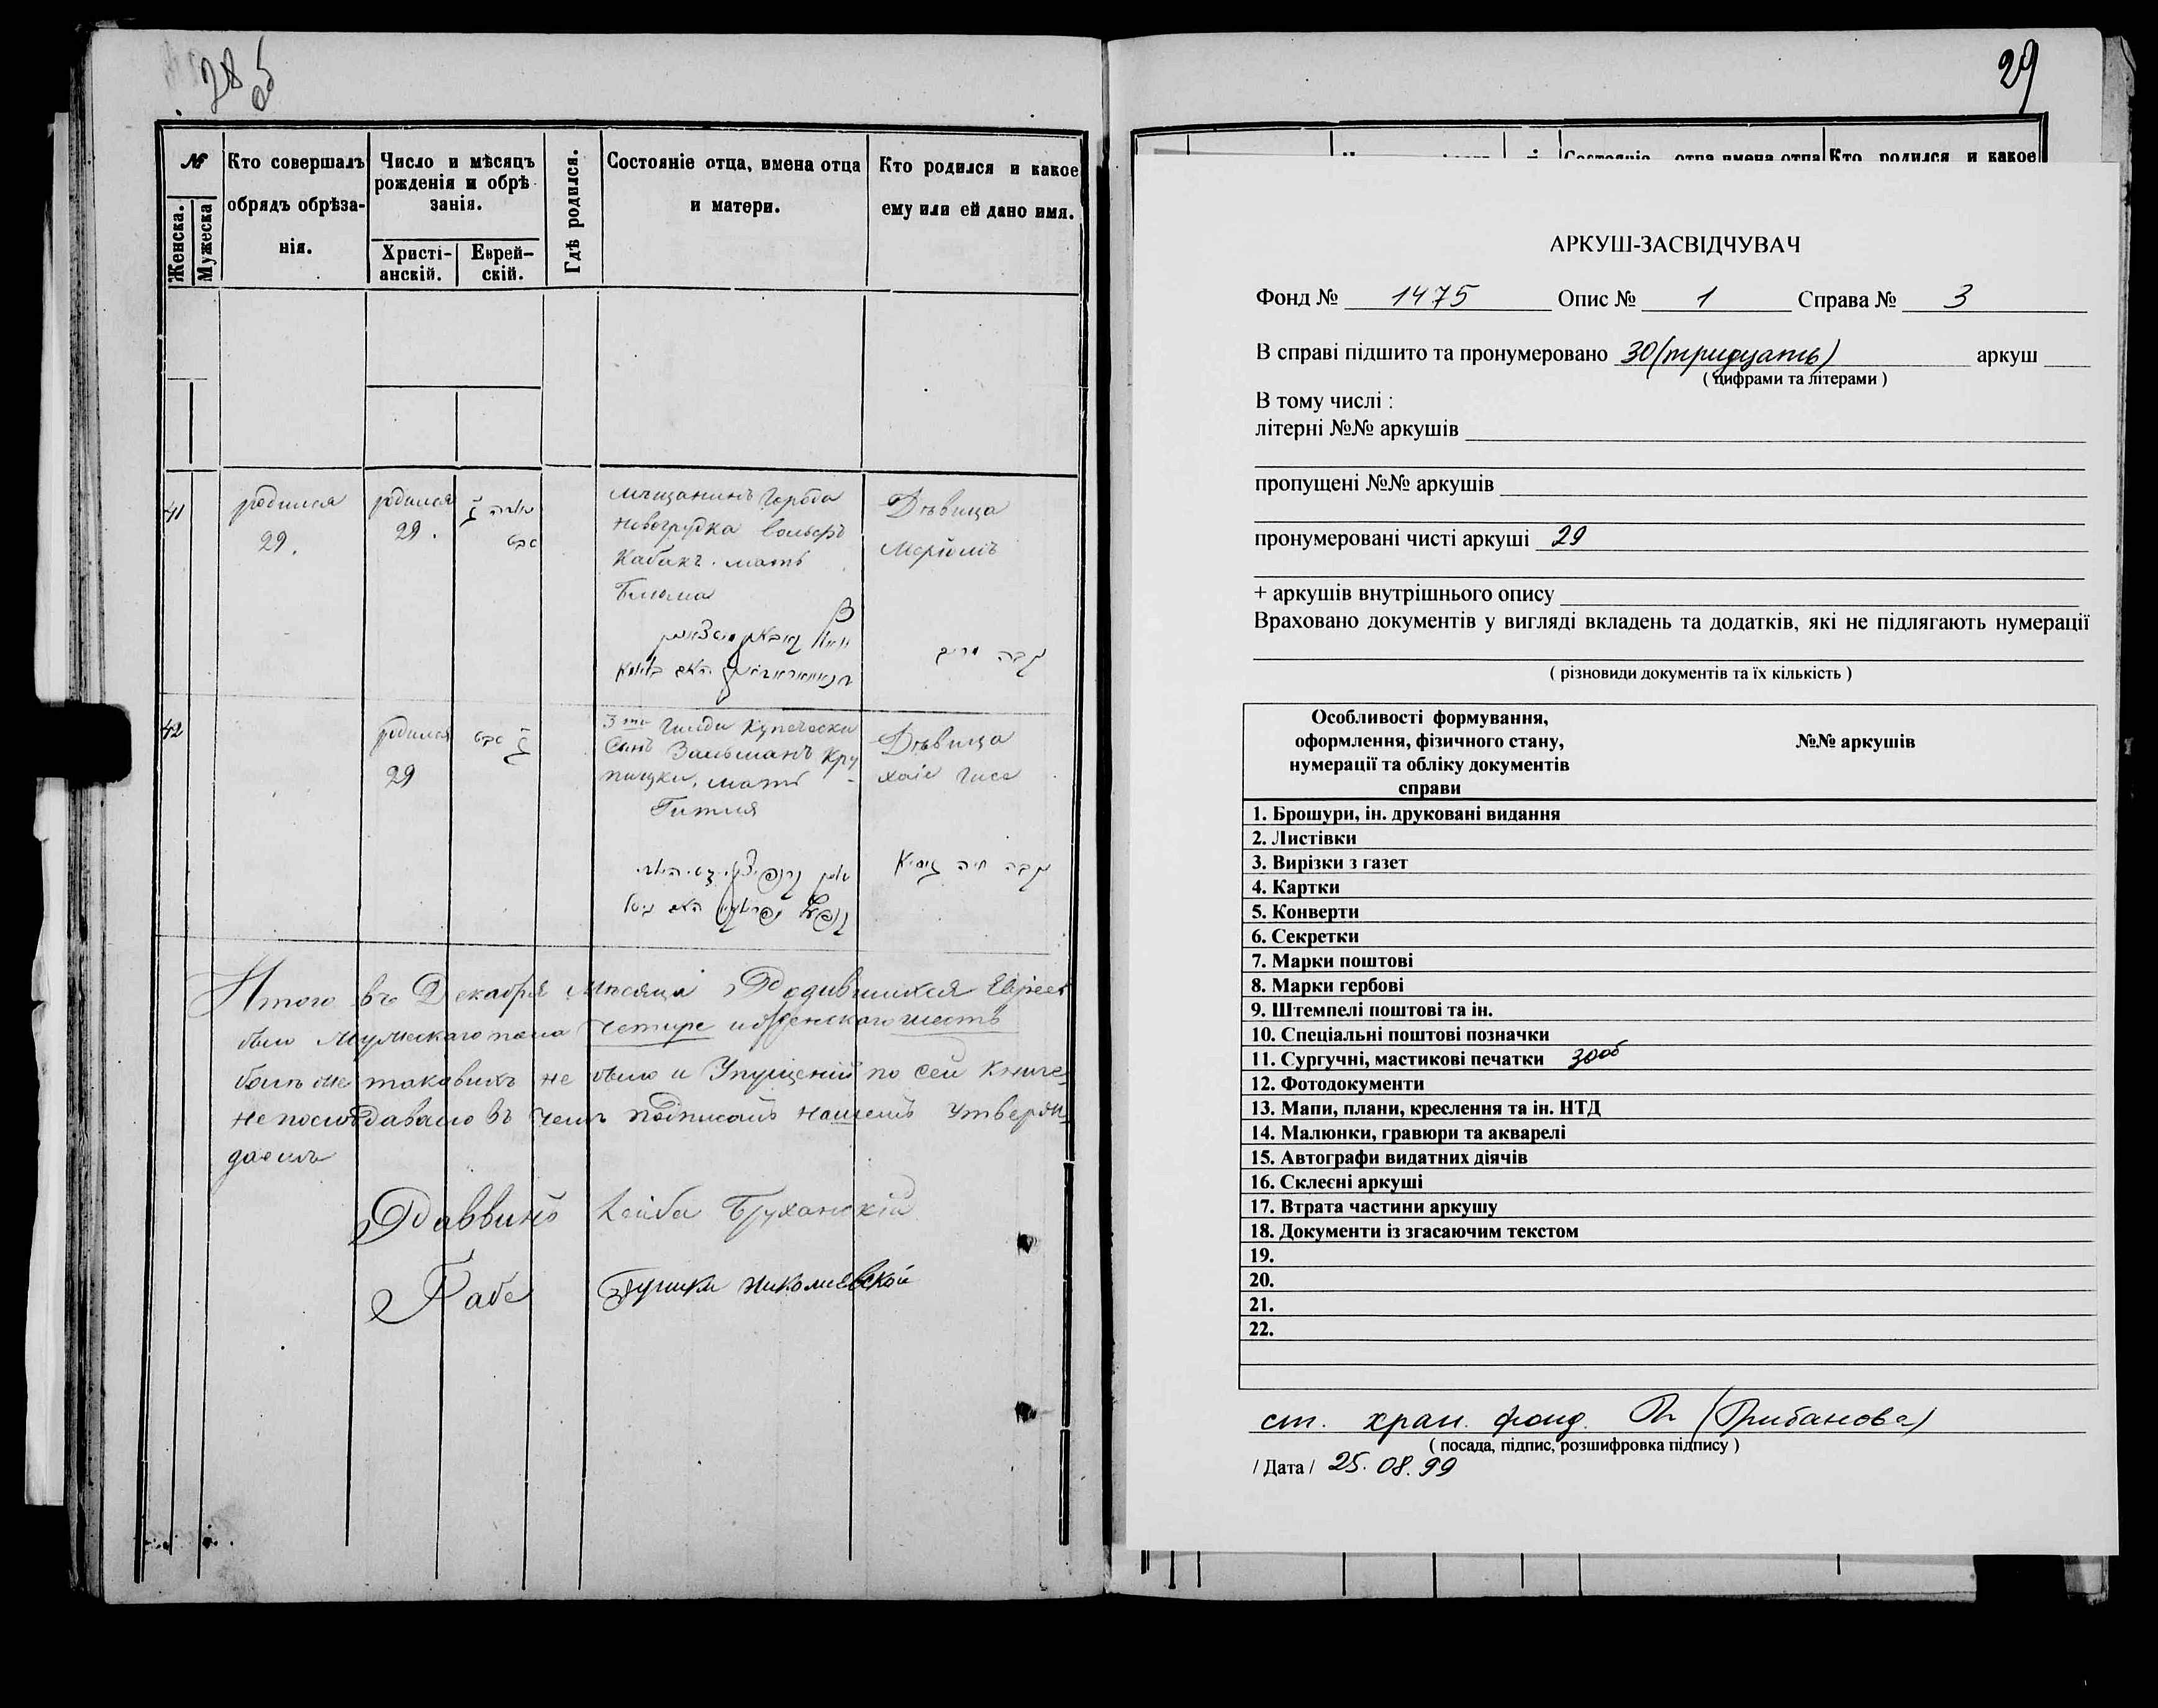 28 об
№
Женска.
Мужеска
Кто совершалъ
обрядъ обрѣза-
нія.
Число и мѣсяцъ
рожденія и обрѣ
занія.
Христі-
анскій.
Еврей-
скій.
Гдѣ родился.
Состояніе отца, имена отца
и матери.
Кто родился и какое
ему или ей дано имя.
41
родился
29.
родился
29.
мѣщанинъ Города
Новогрудка Вольфъ
Кабакъ. мать
Блюма
Дѣвица
Меріомъ
42
родился
29
3 ти Гилди Купечески
Сынъ Зальманъ Кру
пицки, мать
Гитля
Дѣвица
хаіе
נקבה חיה
Итого въ Декабря Мѣсяца Родившихся Евреев
было Мужескаго пола четире и женскаго шесть
более таковихъ не было и Упущеній по сей Книге
не последовало въ чемъ подписомъ нашемъ утверж
даемъ
Раввинъ Лейба Бруханскій
29
Состояніе отца, имена отца
Кто родился и какое
АРКУШ-ЗАСВІДЧУВАЧ
Фонд № 1475 Опис № 1 Справа № 3
В справі підшито та пронумеровано 30 (тридцать) аркуш
( цифрами та літерами )
В тому числі :
літерні №№ аркушів
пропущені №№ аркушів
пронумеровані чисті аркуші 29
+ аркушів внутрішнього опису
Враховано документів у вигляді вкладень та додатків, які не підлягають нумерації
( різновиди документів та їх кількість )
Особливості формування,
оформлення, фізичного стану,
нумерації та обліку документів
справи
№№ аркушів
1. Брошури, ін. друковані видання
2. Листівки
3. Вирізки з газет
4. Картки
5. Конверти
6. Секретки
7. Марки поштові
8. Марки гербові
9. Штемпелі поштові та ін.
10. Спеціальні поштові позначки
11. Сургучні, мастикові печатки 30об
12. Фотодокументи
13. Мапи, плани, креслення та ін. НТД
14. Малюнки, гравюри та акварелі
15. Автографи видатних діячів
16. Склеєні аркуші
17. Втрата частини аркушу
18. Документи із згасаючим текстом
19.
20.
21.
22.
ст. хран. фонд. (Грибанова)
( посада, підпис, розшифровка підпису )
/ Дата / 25. 08. 99